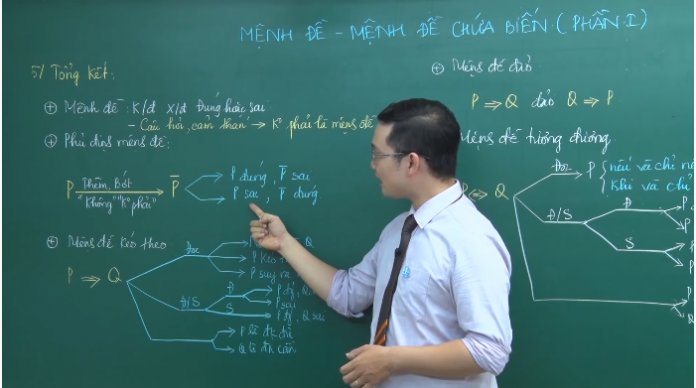 MỆNH ĐỀ - MỆNH ĐỀ CHỨA BIẾN (PHẦN I)
5/ Tổng kết:
⊕ Mệnh đề: K/đ X/đ Đúng hoặc sai
- Câu hỏi, cảm thán → Ko phải là mệnh đề
⊕ Phủ định mệnh đề:
P Thêm, bớt "không" "ko phải" P̄
P đúng, P̄ sai
P sai, P̄ đúng
⊕ Mệnh đề kéo theo
P ⇒ Q
Đọc
Q
P kéo th
P suy ra
Đ/S
Đ
P đ/, Q
S
P sai
P đ/, Q sai
P là đk đủ
Q là đk cần
⊕ Mệnh đề đảo
P ⇒ Q đảo Q ⇒ P
Mệnh đề tương đương
P ⇔ Q
Đọc
P { nếu và chỉ nế
khi và chỉ
Đ/S
Đ
S